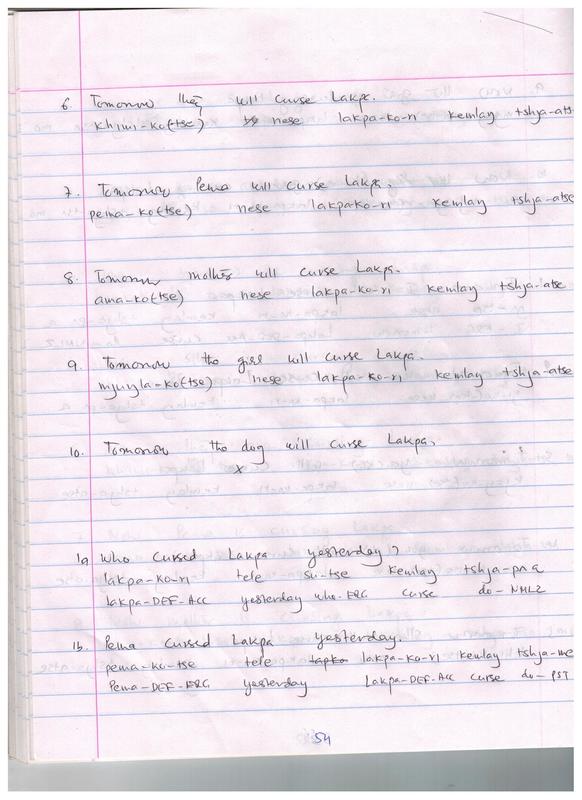 6. Tomorrow they will curse Lakpa.
khini-ko(tse) nese lakpa-ko-ri kemlay tshja-ats
7. Tomorrow Pema will curse Lakpa.
pema-ko(tse) nese lakpa-ko-ri kemlay tshja-atse
8. Tomorrow mother will curse Lakpa.
ama-ko(tse) nese lakpa-ko-ri kemlay tshja-atse
9. Tomorrow the girl will curse Lakpa.
nese lakpa-ko-ri kemlay tshja-atse
10. Tomorrow the dog will curse Lakpa.
x
1a Who cursed Lakpa yesterday?
lakpa-ko-ri tele su-tse kemlay tshja-pna
lakpa-DEF-ACC yesterday who-ERG curse do-NMLZ
1b. Pema cursed Lakpa yesterday.
pema-ko-tse tele lakpa-ko-ri kemlay tshja-me
Pema-DEF-ERG yesterday Lakpa-DEF-ACC curse do-PST
54